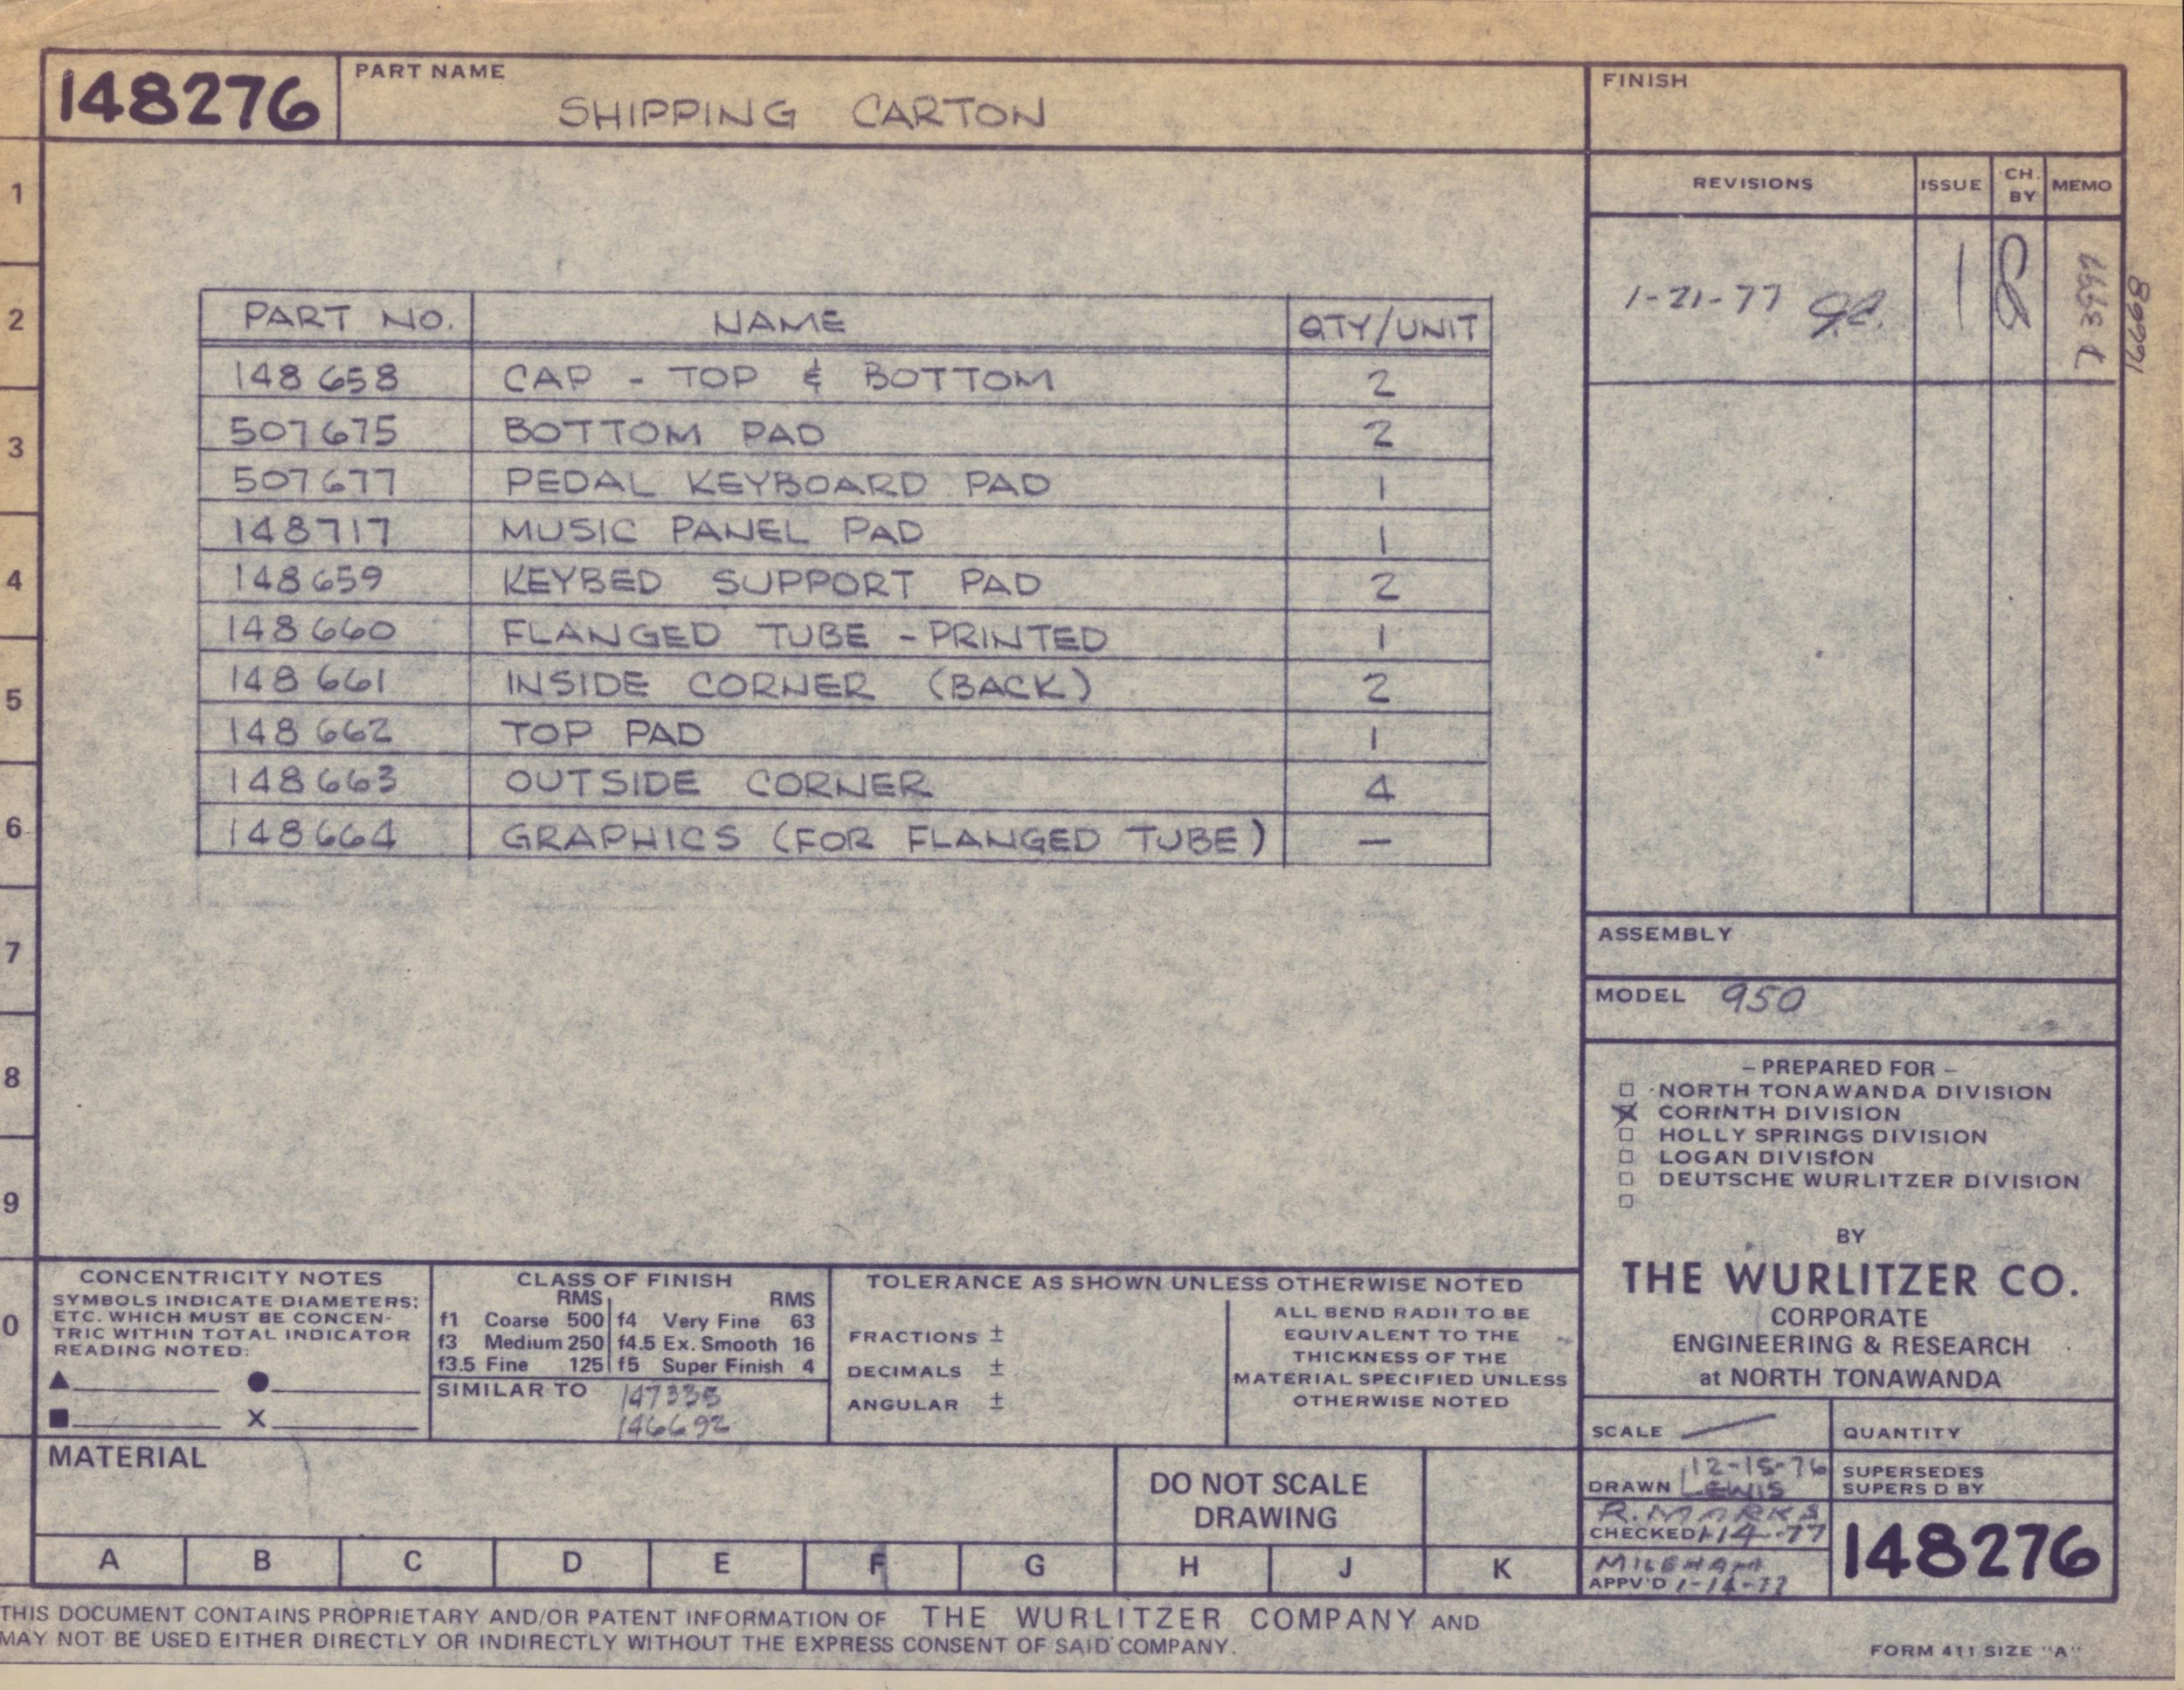 148276
PART NAME
SHIPPING CARTON
FINISH
REVISIONS ISSUE CH. BY MEMO
1-21-77 J.C. 1
PART NO. NAME QTY/UNIT
148658 CAP - TOP & BOTTOM 2
507675 BOTTOM PAD 2
507677 PEDAL KEYBOARD PAD 1
148717 MUSIC PANEL PAD 1
148659 KEYBED SUPPORT PAD 2
148660 FLANGED TUBE - PRINTED 1
148661 INSIDE CORNER (BACK) 2
148662 TOP PAD 1
148663 OUTSIDE CORNER 4
148664 GRAPHICS (FOR FLANGED TUBE) —
1
2
3
4
5
6
7
8
9
0
ASSEMBLY
MODEL 950
– PREPARED FOR –
NORTH TONAWANDA DIVISION
CORINTH DIVISION
HOLLY SPRINGS DIVISION
LOGAN DIVISION
DEUTSCHE WURLITZER DIVISION
BY
THE WURLITZER CO.
CORPORATE
ENGINEERING & RESEARCH
at NORTH TONAWANDA
CONCENTRICITY NOTES
SYMBOLS INDICATE DIAMETERS;
ETC. WHICH MUST BE CONCEN-
TRIC WITHIN TOTAL INDICATOR
READING NOTED:
▲ ●
■ X
CLASS OF FINISH
RMS RMS
f1 Coarse 500 f4 Very Fine 63
f3 Medium 250 f4.5 Ex. Smooth 16
f3.5 Fine 125 f5 Super Finish 4
SIMILAR TO 147335
146692
TOLERANCE AS SHOWN UNLESS OTHERWISE NOTED
FRACTIONS ±
DECIMALS ±
ANGULAR ±
ALL BEND RADII TO BE
EQUIVALENT TO THE
THICKNESS OF THE
MATERIAL SPECIFIED UNLESS
OTHERWISE NOTED
SCALE —
QUANTITY
MATERIAL
DO NOT SCALE
DRAWING
DRAWN 12-15-76
LEWIS
SUPERSEDES
SUPERS D BY
R. MARKS
CHECKED 1-14-77
MILEHAM
APPV'D 1-14-77
148276
A B C D E F G H J K
THIS DOCUMENT CONTAINS PROPRIETARY AND/OR PATENT INFORMATION OF THE WURLITZER COMPANY AND
MAY NOT BE USED EITHER DIRECTLY OR INDIRECTLY WITHOUT THE EXPRESS CONSENT OF SAID COMPANY.
FORM 411 SIZE "A"